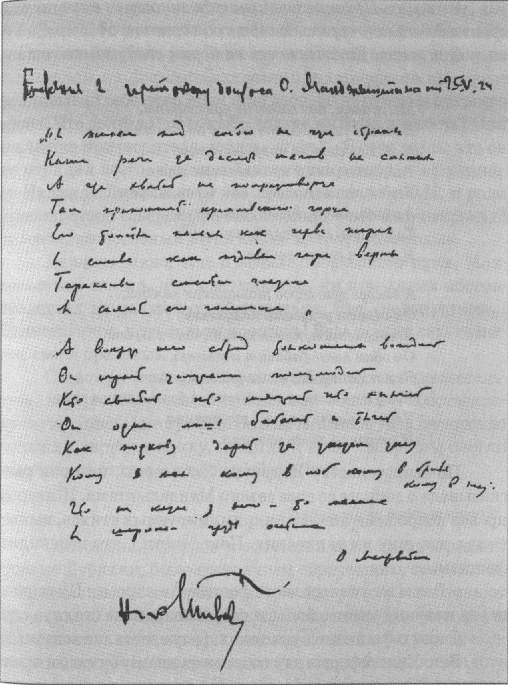 к протоколу допроса О. Мандельштама от 25.V.34
Мы живем под собою не чуя страны
Наши речи за десять шагов не слышны
А где хватит на полразговорца
Там припомнят кремлевского горца
Его толстые пальцы как черви жирны
А слова как пудовые гири верны
Тараканьи смеются
И сияют его голенища
А вокруг него сброд тонкошеих вождей
Он играет услугами полулюдей
Кто свистит кто мяучит кто хнычет
Он один лишь бабачит и тычет
Как подкову дарит за указом указ
Кому в пах кому в лоб кому в бровь
кому в глаз.
Что ни казнь у него – то малина
И широкая грудь осетина
О Мандельштам